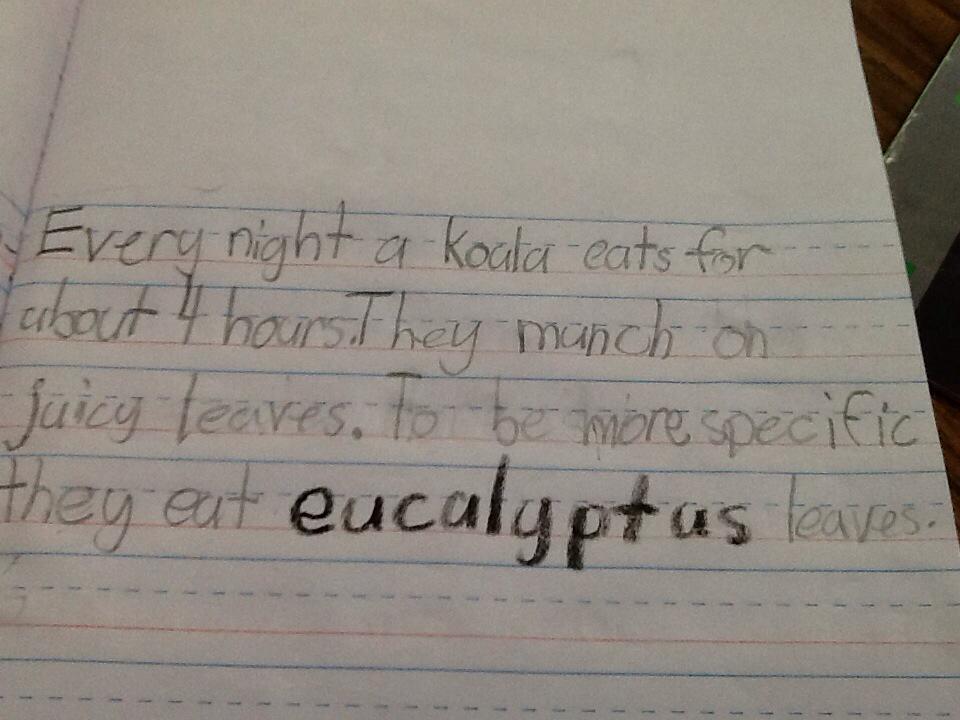 Every night a koala eats for
about 4 hours. They munch on
juicy leaves. To be more specific
they eat eucalyptus leaves.